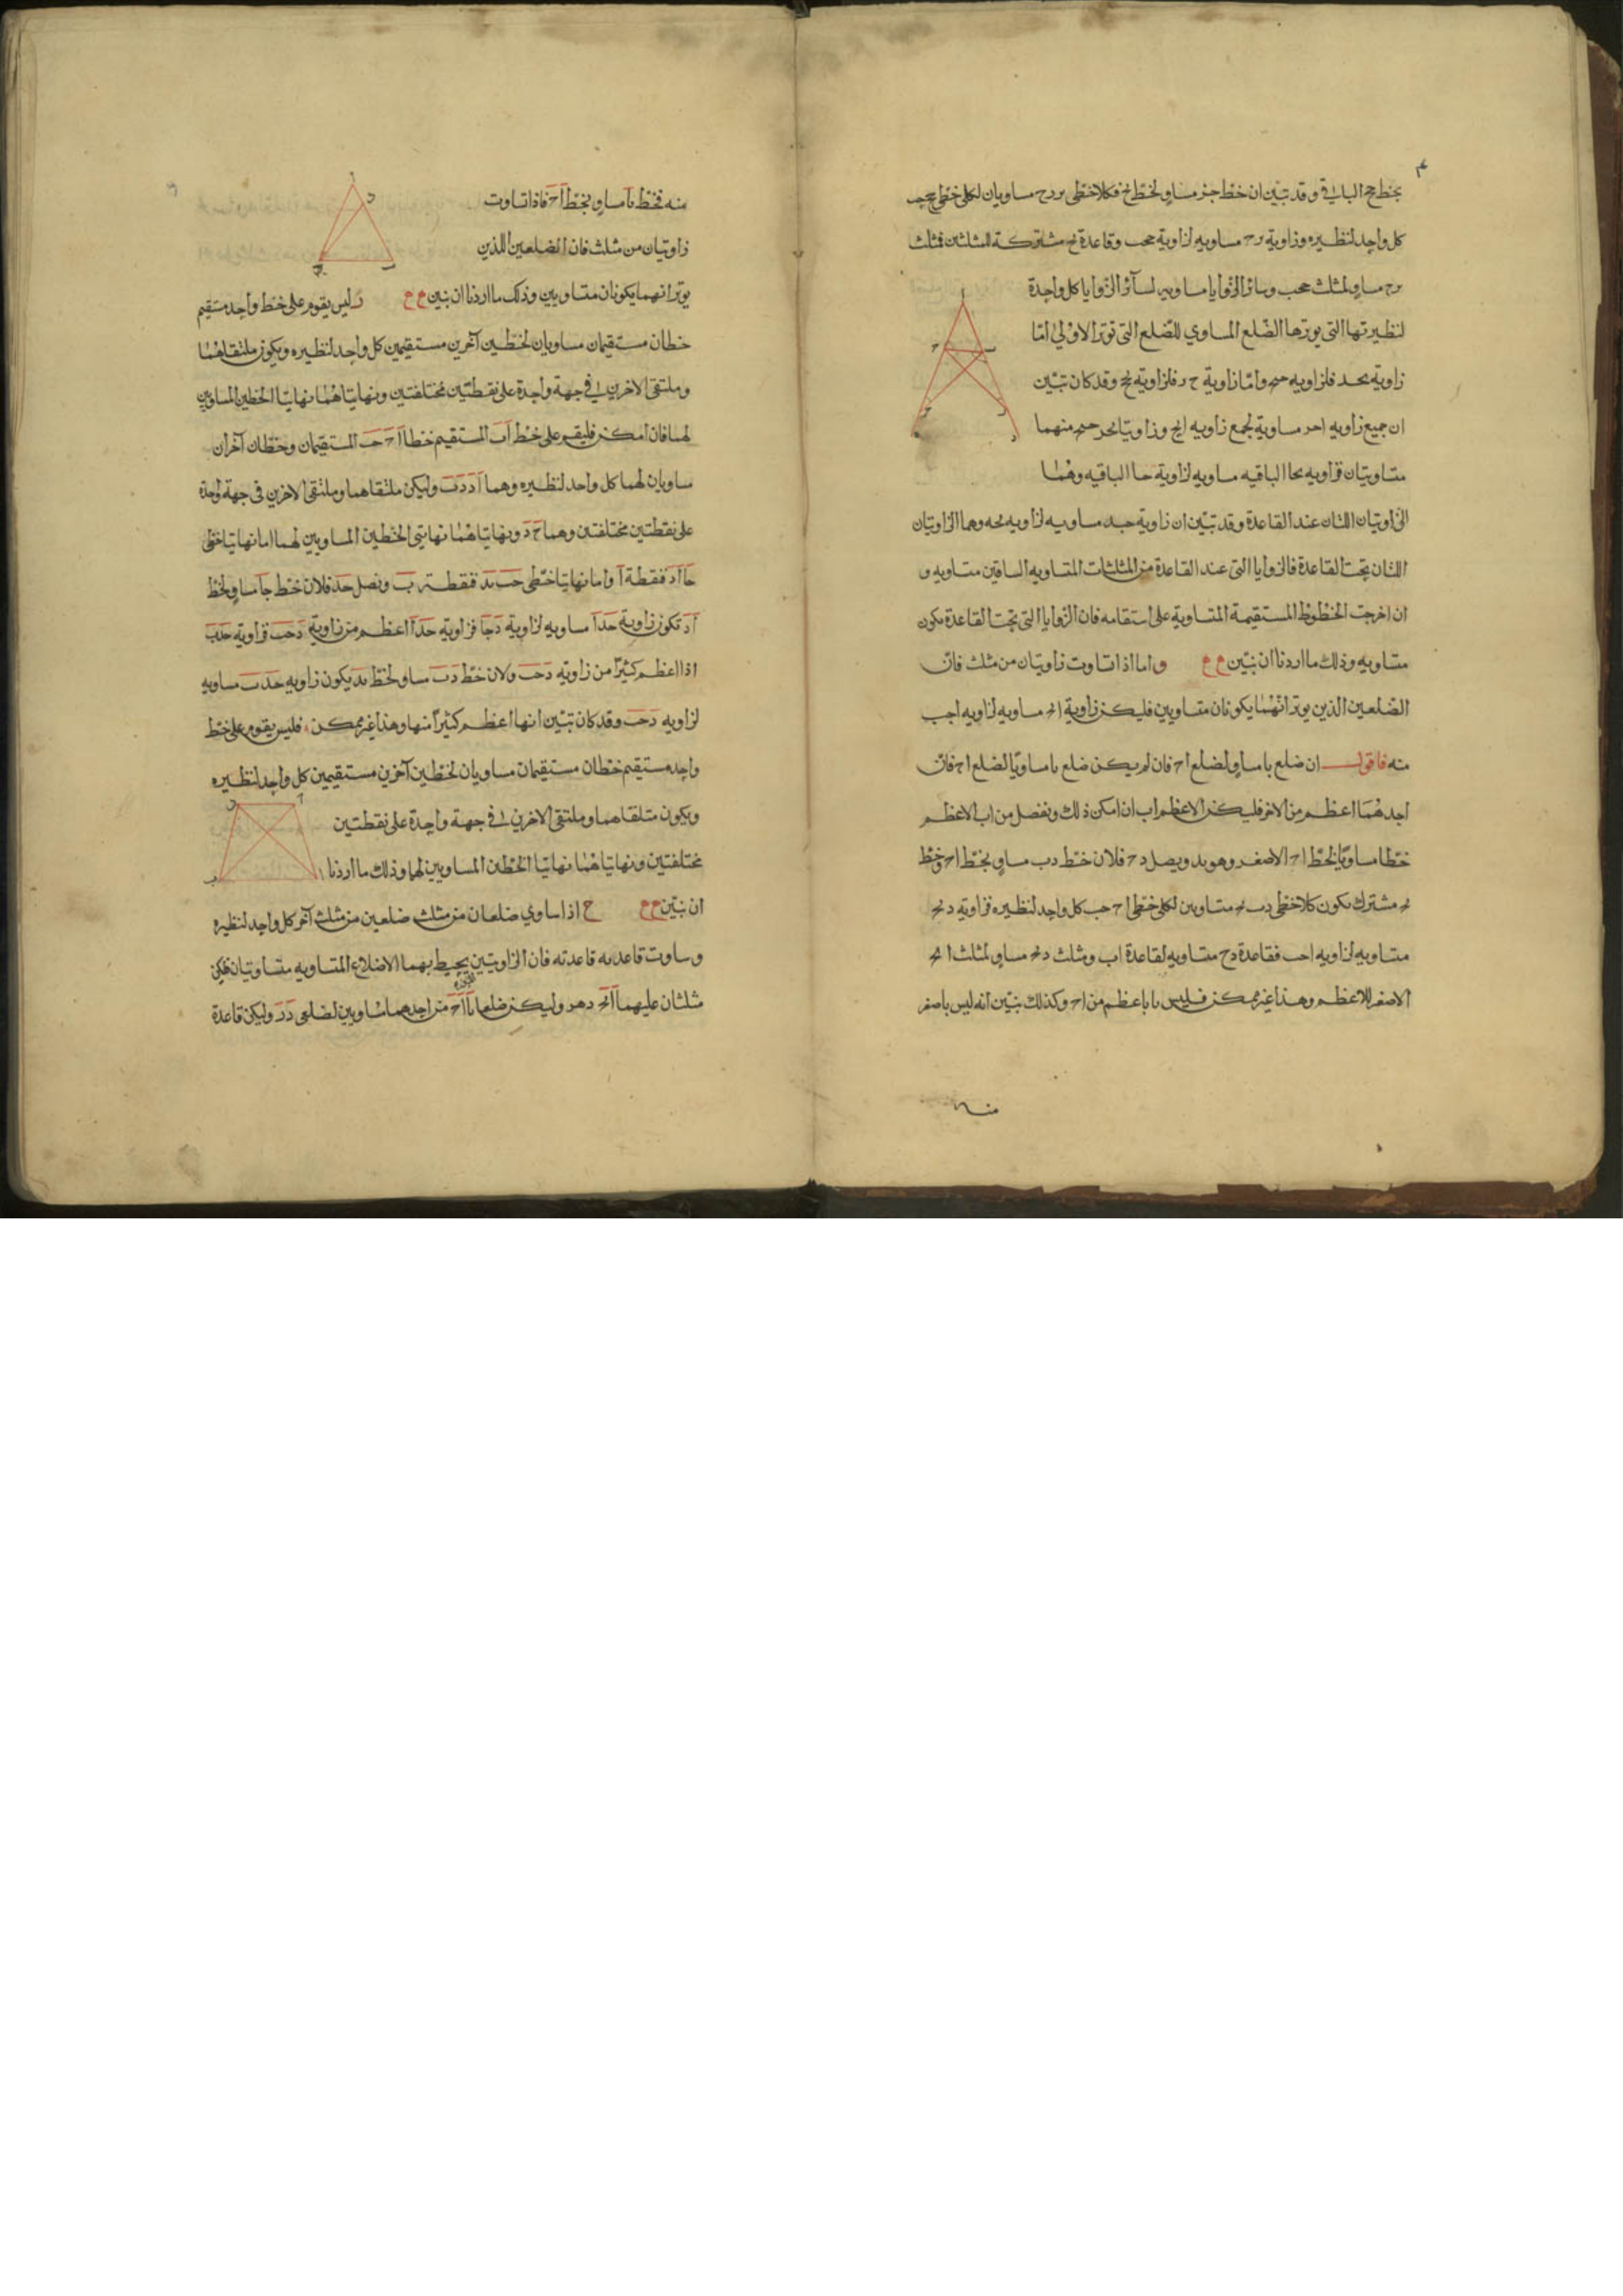 ٣
بخط جح الباقي وقد تبين ان خط جز مساو لخط بح فكلا خطي بر رح مساويان لكلي خطي جح حب
كل واحد لنظيره وزاوية برح مساويه لزاوية جحب وقاعدة بح مشتركة للمثلثين فمثلث
برح مساو لمثلث جحب وسائر الزوايا مساويه لسائر الزوايا كل واحدة
لنظيرتها التي يوترها الضلع المساوي للضلع التي توتر الاولى امّا
زاوية فلزاويه وامّا زاوية ح ر فلزاوية وقد كان تبيّن
ان جميع زاويه مساوية لجميع زاويه وزاويتا منهما
متساويتان فزاويه الباقيه مساويه لزاوية الباقيه وهما
الزاويتان اللتان عند القاعدة وقد تبيّن ان زاوية مساويه لزاويه وهما الزاويتان
اللتان تحت القاعدة فالزوايا التى عند القاعدة من المثلثات المتساويه الساقين متساويه و
ان اخرجت الخطوط المستقيمة المتساوية على استقامه فان الزوايا التى تحت القاعدة يكون
متساويه وذلك ما اردنا ان نبيّن و اما اذا تساوت زاويتان من مثلث فانّ
الضلعين الذين يوترانهما يكونان متساويين فليكن زاوية ابج مساويه لزاويه اجب
منه فاقول ان ضلع با مساو لضلع اح فان لم يكن ضلع با مساويًا لضلع اح فانّ
احدهما اعظم من الاخر فليكن الاعظم اب ان امكن ذلك ونفصل من اب الاعظم
خطا مساويًا لخط اح الاصغر وهو بد ويصل دح فلان خط دب مساو بخط اح وخط
بح مشترك يكون كلا خطي دب بح متساويين لكلي خطي اح حب كل واحد لنظيره فزاويه دبح
متساويه لزاويه احب فقاعدة دح متساويه لقاعدة اب ومثلث دبح مساو لمثلث ابح
الاصغر للاعظم وهذا غير ممكن فليس با باعظم من اح وكذلك نبيّن انه ليس باصغر
منه
منه فخط با مساو بخط اح فاذا تساوت
زاويتان من مثلث فان الضلعين اللذين
يوترانهما يكونان متساويين وذلك ما اردنا ان نبين ز ليس يقوم على خط واحد مستقيم
خطان مستقيمان مساويان لخطين آخرين مستقيمين كل واحد لنظيره ويكون ملتقاهما
وملتقى الاخرين في جهة واحدة على نقطتين مختلفتين ونهايتاهما نهايتا الخطين المساويين
لهما فان امكن فليقم على خط اب المستقيم خطا اح حب المستقيمان وخطان آخران
مساويان لهما كل واحد لنظيره وهما اد دب وليكن ملتقاهما وملتقى الاخرين فى جهة واحدة
على نقطتين مختلفتين وهما ح د ونهايتاهما نهايتي الخطين المساويين لهما اما نهايتا خطي
حا اد فنقطة آ واما نهايتا خطي حب بد فنقطة ب ونصل حد فلان خط جا مساو لخط
اد تكون زاوية حدا مساويه لزاوية دجا فزاويه حدا اعظم من زاوية دحب فزاويه حدب
اذا اعظم كثيرًا من زاويه دحب ولان خط دب مساو لخط بد يكون زاويه حدب مساويه
لزاويه دحب وقد كان تبيّن انها اعظم كثيرًا منها وهذا غير ممكن فليس يقوم على خط
واحد مستقيم خطان مستقيمان مساويان لخطين آخرين مستقيمين كل واحد لنظيره
ويكون متلقاهما وملتقى الاخرين في جهة واحدة على نقطتين
مختلفتين ونهايتاهما نهايتا الخطين المساويين لهما وذلك ما اردنا
ان نبيّن ح اذا ساوي ضلعان من مثلث ضلعين من مثلث آخر كل واحد لنظيره
وساوت قاعدته قاعدته فان الزاويتين يحيط بهما الاضلاع المتساويه متساويتان فليكن
مثلثان عليهما ابح دهر وليكن ضلعا با اح من احدهما مساويين لضلعي در وليكن قاعدة